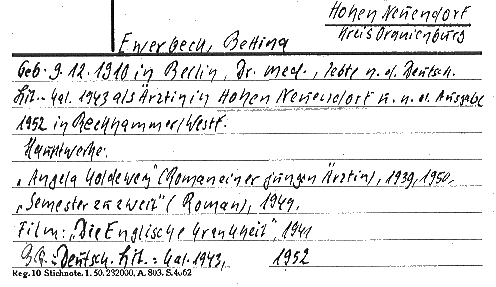 Hohen Neuendorf
Kreis Oranienburg
Ewerbeck, Bettina
Geb. 9.12.1910 in Berlin, Dr. med., lebte n. d. Deutsch.
Lit.-Kal. 1943 als Ärztin in Hohen Neuendorf u. n. d. Ausgabe
1952 in Beckhammer/Westf.
Hauptwerke:
„Angela Koldewey" (Roman einer jungen Ärztin), 1939, 1950,
„Semester zu zweit" (Roman), 1949,
Film: „Die Englische Krankheit", 1941
BQ.: Deutsch. Lit.-Kal. 1943, 1952
Reg. 10 Stichnote. 1. 50. 232000. A. 803. S. 4. 62